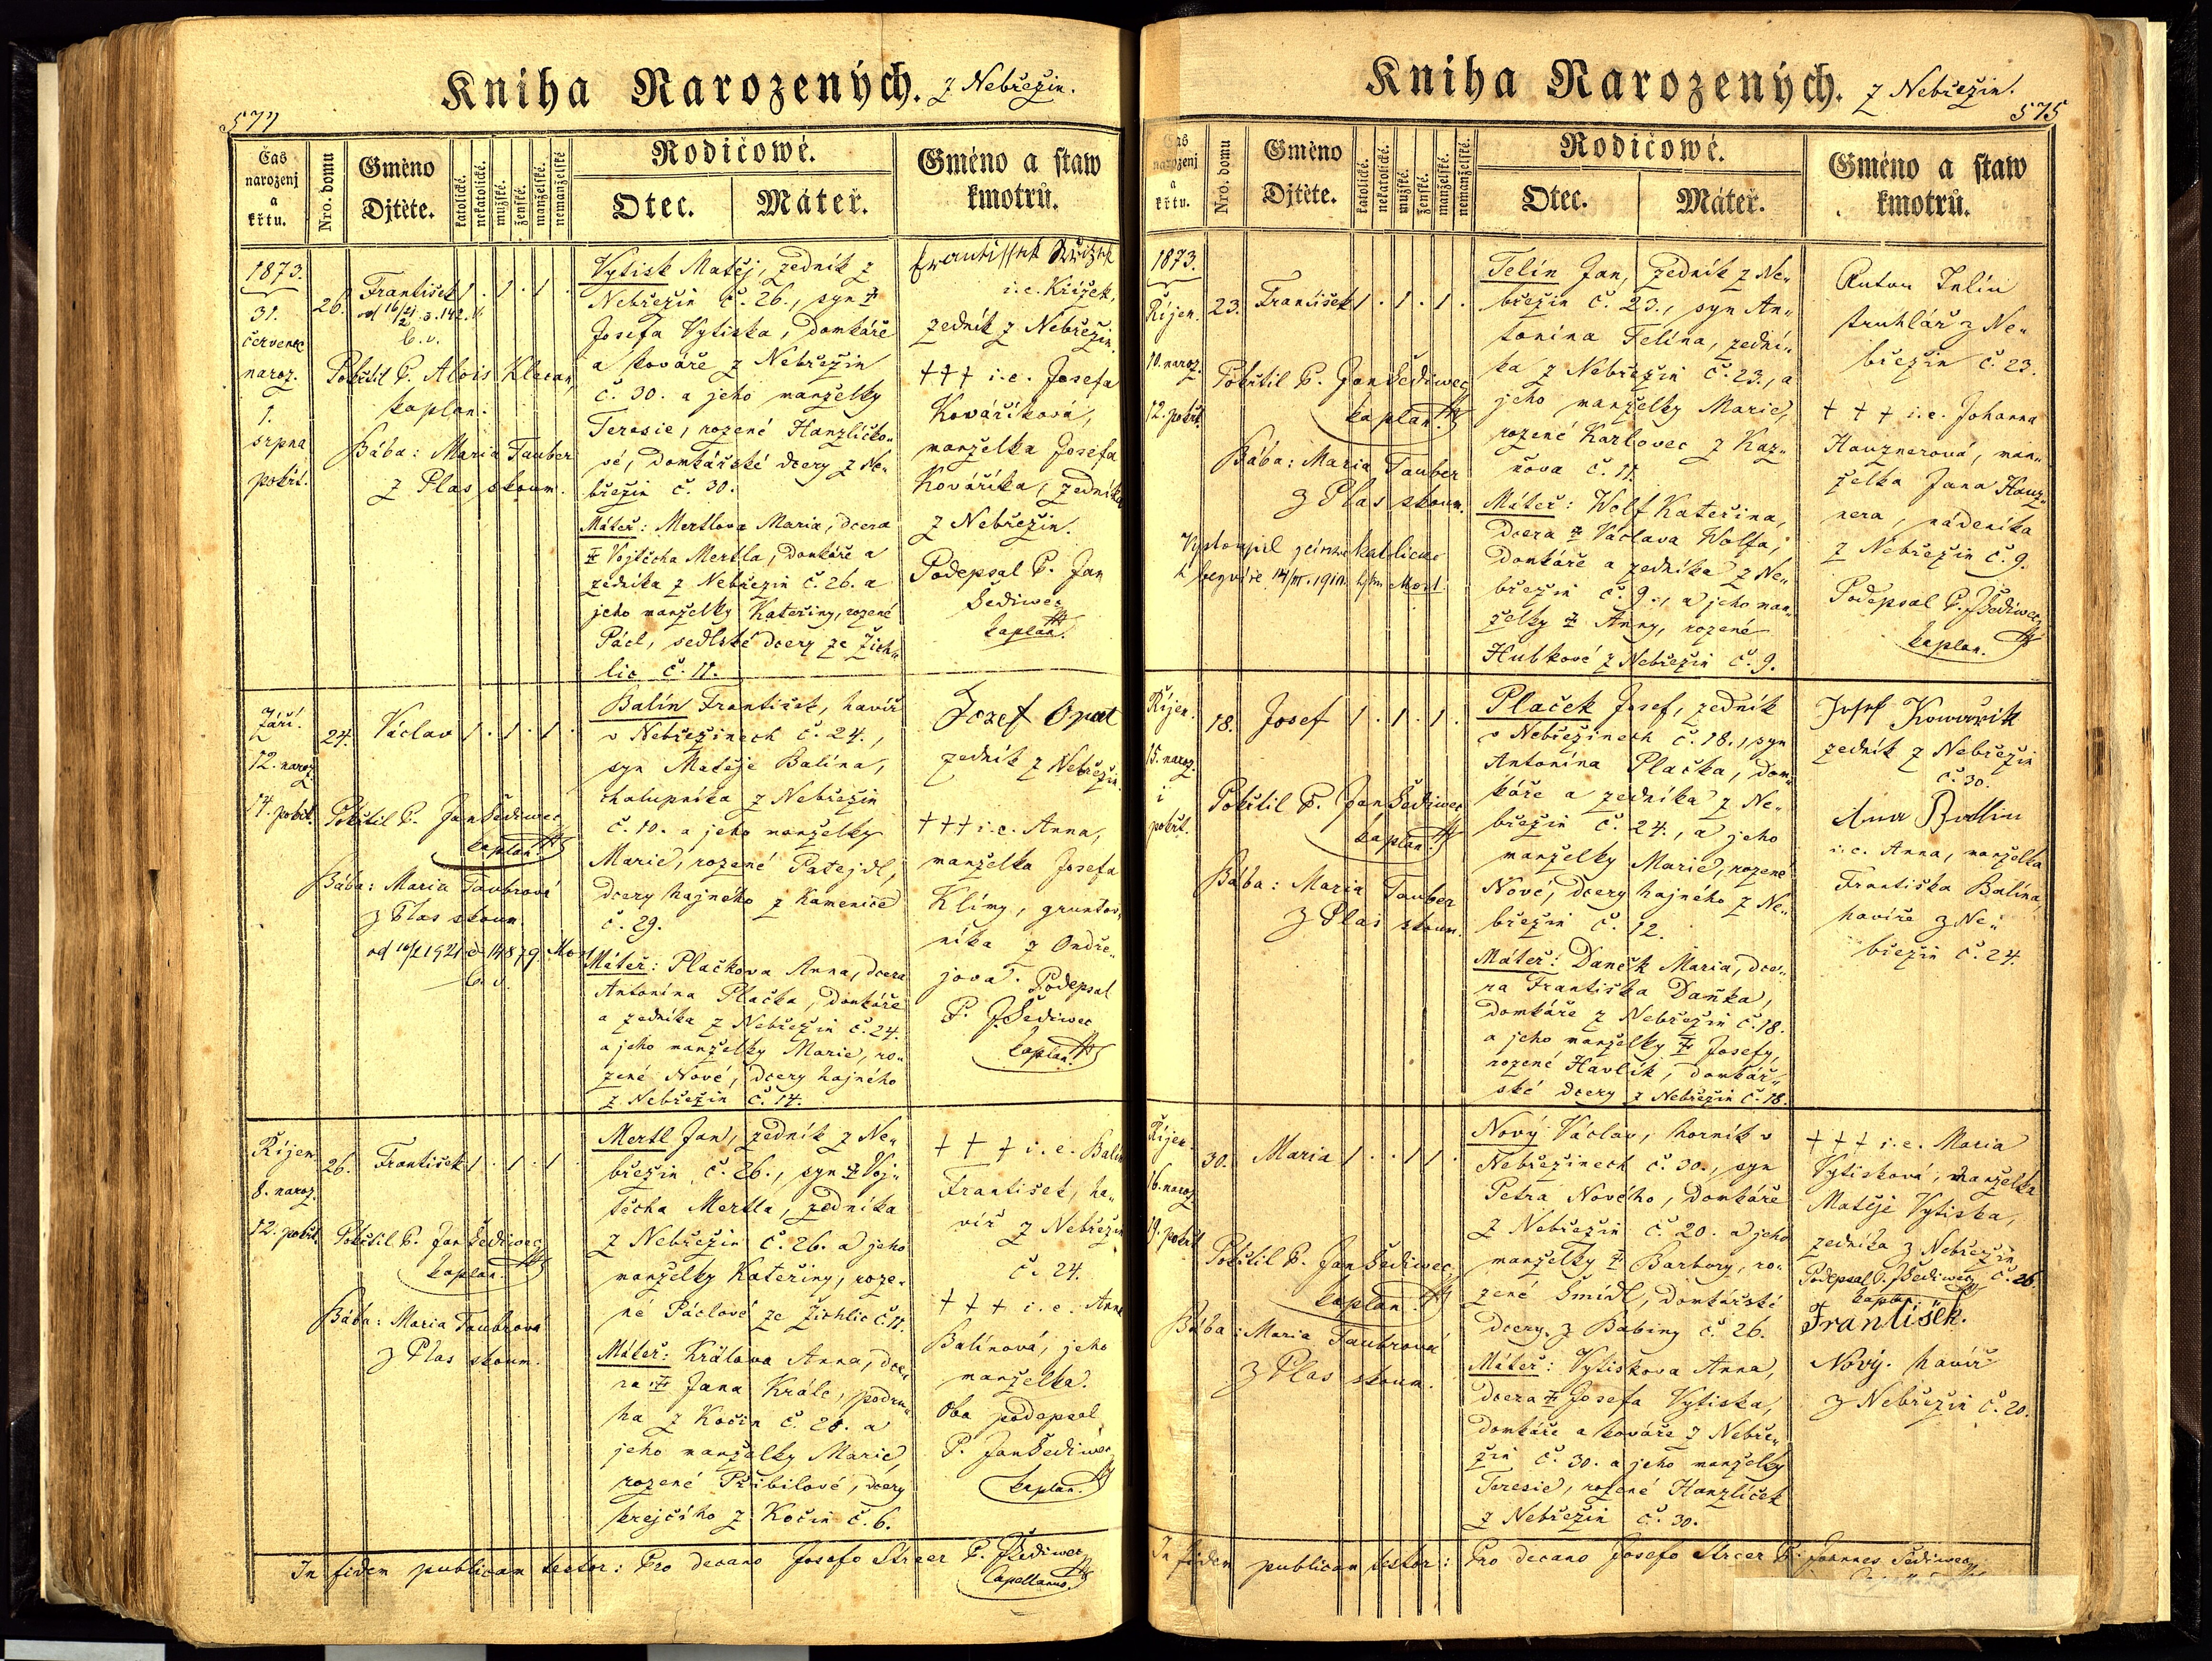 Kniha Narozených. z Nebřezin.
574
Čas narozenj a křtu.
Nro. domu
Gméno Djtěte.
katolické.
nekatolické.
mužské.
ženské.
manželské.
nemanželské
Rodičowé.
Otec.
Máteř.
Gméno a staw kmotrů.
1873.
31.
červenec
naroz.
1.
srpna
pokřt.
26.
František 1 . 1 . 1 .
b. v.
Pokřtil P. Alois Klacan,
kaplan.
Bába: Maria Tauber
z Plas skoum.
Vytisk Matěj, zedník z
Nebřezin č. 26., syn
Josefa Vytiska, domkáře
a kováře z Nebřezin
č. 30. a jeho manželky
Teresie, rozené Hanzličko„
vé, domkářské dcery z Ne„
březin č. 30.
Máteř: Mertlova Maria, dcera
Vojtěcha Mertla, domkáře a
zedníka z Nebřezin č. 26. a
jeho manželky Kateřiny, rozené
Pácl, sedlské dcery ze Žich„
lic č. 11.
i.e. Křížek,
zedník z Nebřezin.
††† i.e. Josefa
Kovaříková,
manželka Josefa
Kováříka, zedníka
z Nebřezin.
Podepsal P. Jan
Šediwec
kaplan.
Září.
12. naroz.
14. pokřt.
24.
Václav 1 . 1 . 1 .
Pokřtil P. Jan Šediwec
kaplan.
Bába: Maria Taubrová
z Plas skoum.
od 1921 č. 14879 Most
b. v.
Balín František, havíř
v Nebřezinech č. 24.,
syn Matěje Balína,
chalupníka z Nebřezin
č. 10. a jeho manželky
Marie, rozené Patejdl,
dcery hajného z Kamenice
č. 29.
Máteř: Plačkova Anna, dcera
Antonína Plačka, domkáře
a zedníka z Nebřezin č. 24.
a jeho manželky Marie, ro„
zené Nové, dcery hajného
z Nebřezin č. 14.
Josef Opat
zedník z Nebřezin.
††† i.e. Anna,
manželka Josefa
Klímy, gruntov„
níka z Ondře„
jova. Podepsal
P. J Šediwec
kaplan
Říjen
8. naroz.
12. pokřt.
26.
František 1 . 1 . 1 .
Pokřtil P. Jan Šediwec
kaplan.
Bába: Maria Taubrová
z Plas skoum.
Mertl Jan, zedník z Ne„
březin č. 26., syn Voj„
těcha Mertla, zedníka
z Nebřezin č. 26. a jeho
manželky Kateřiny, roze„
né Páclové ze Žichlic č. 11.
Máteř: Králova Anna, dce„
ra Jana Krále, podru„
ha z Kočin č. 20. a
jeho manželky Marie,
rozené Přibilové, dcery
krejčího z Kočin č. 6.
† † † i.e. Balín
František, ha„
víř z Nebřezin
č. 24.
† † † i.e. Anna
Balínová, jeho
manželka.
Oba podepsal
P. Jan Šediwec
kaplan.
In fidem publicam testor: Pro decano Josefo Streer P. J Šediwec
Capellanus.
Kniha Narozených. z Nebřezin.
575
Čas narozenj a křtu.
Nro. domu
Gméno Djtěte.
katolické.
nekatolické.
mužské.
ženské.
manželské.
nemanželské.
Rodičowé.
Otec.
Máteř.
Gméno a staw kmotrů.
1873.
Říjen.
10. naroz.
12. pokřt.
23.
František 1 . 1 . 1 .
Pokřtil P. Jan Šediwec
kaplan.
Bába: Maria Tauber
z Plas skoum.
Telín Jan, zedník z Ne„
březin č. 23., syn An„
tonína Telína, zední„
ka z Nebřezin č. 23., a
jeho manželky Marie,
rozené Karlovec z Kaz„
ňova č. 11.
Máteř: Wolf Kateřina,
dcera Václava Wolfa,
domkáře a zedníka z Ne„
březin č. 9., a jeho man„
želky Anny, rozené
Hubkové z Nebřezin č. 9.
truhlář z Ne„
březin č. 23.
† † † i.e. Johanna
Hauznerová, man„
želka Jana Hauz„
nera, nádeníka
z Nebřezin č. 9.
Podepsal P. J Šediwec,
kaplan.
Říjen.
15. naroz.
i
pokřt.
18.
Josef 1 . 1 . 1 .
Pokřtil P. Jan Šediwec
kaplan.
Bába: Maria Tauber
z Plas skoum.
Plaček Josef, zedník
v Nebřezinech č. 18., syn
Antonína Plačka, dom„
káře a zedníka z Ne„
březin č. 24., a jeho
manželky Marie, rozené
Nové, dcery hajného z Ne„
březin č. 12.
Máteř: Daněk Maria, dce„
ra Františka Daňka,
domkáře z Nebřezin č. 18.
a jeho manželky Josefy,
rozené Havlík, domkář„
ské dcery z Nebřezin č. 18.
Josef Kowařik
zedník z Nebřezin
č. 30.
i.e. Anna, manželka
Františka Balína,
havíře z Ne„
březin č. 24.
Říjen.
16. naroz.
19. pokřt.
30.
Maria 1 . . 1 1 .
Pokřtil P. Jan Šediwec,
kaplan.
Bába: Maria Taubrová
z Plas skoum.
Nový Václav, horník v
Nebřezinech č. 30., syn
Petra Nového, domkáře
z Nebřezin č. 20. a jeho
manželky Barbory, ro„
zené Šmídl, domkářské
dcery z Babiny č. 26.
Máteř: Vytiskova Anna,
dcera Josefa Vytiska,
domkáře a kováře z Nebře„
zin č. 30. a jeho manželky
Teresie, rozené Hanzlíček
z Nebřezin č. 30.
† † † i.e. Maria
Vytisková, manželka
Matěje Vytiska,
zedníka z Nebřezin
č. 26.
Podepsal P. J Šediwec,
kaplan.
František.
Nový. havíř
z Nebřezin č. 20.
In fidem publicam testor: Pro decano Josefo Streer P. Joannes Šediwec,